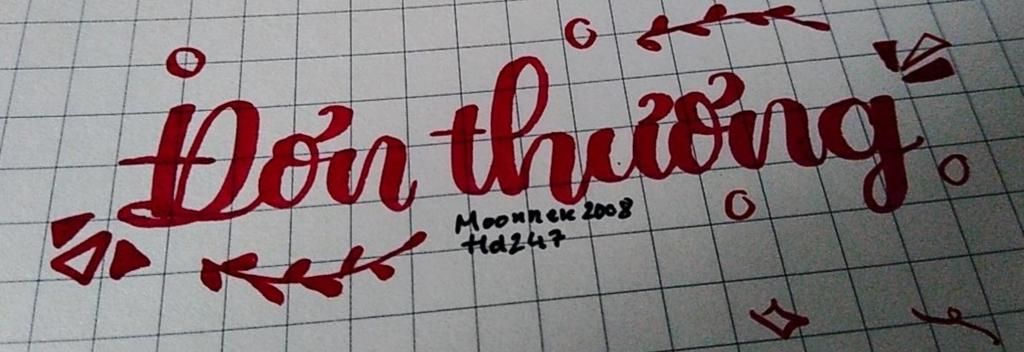 Đơn thương
Moonnek 2008
Hd247